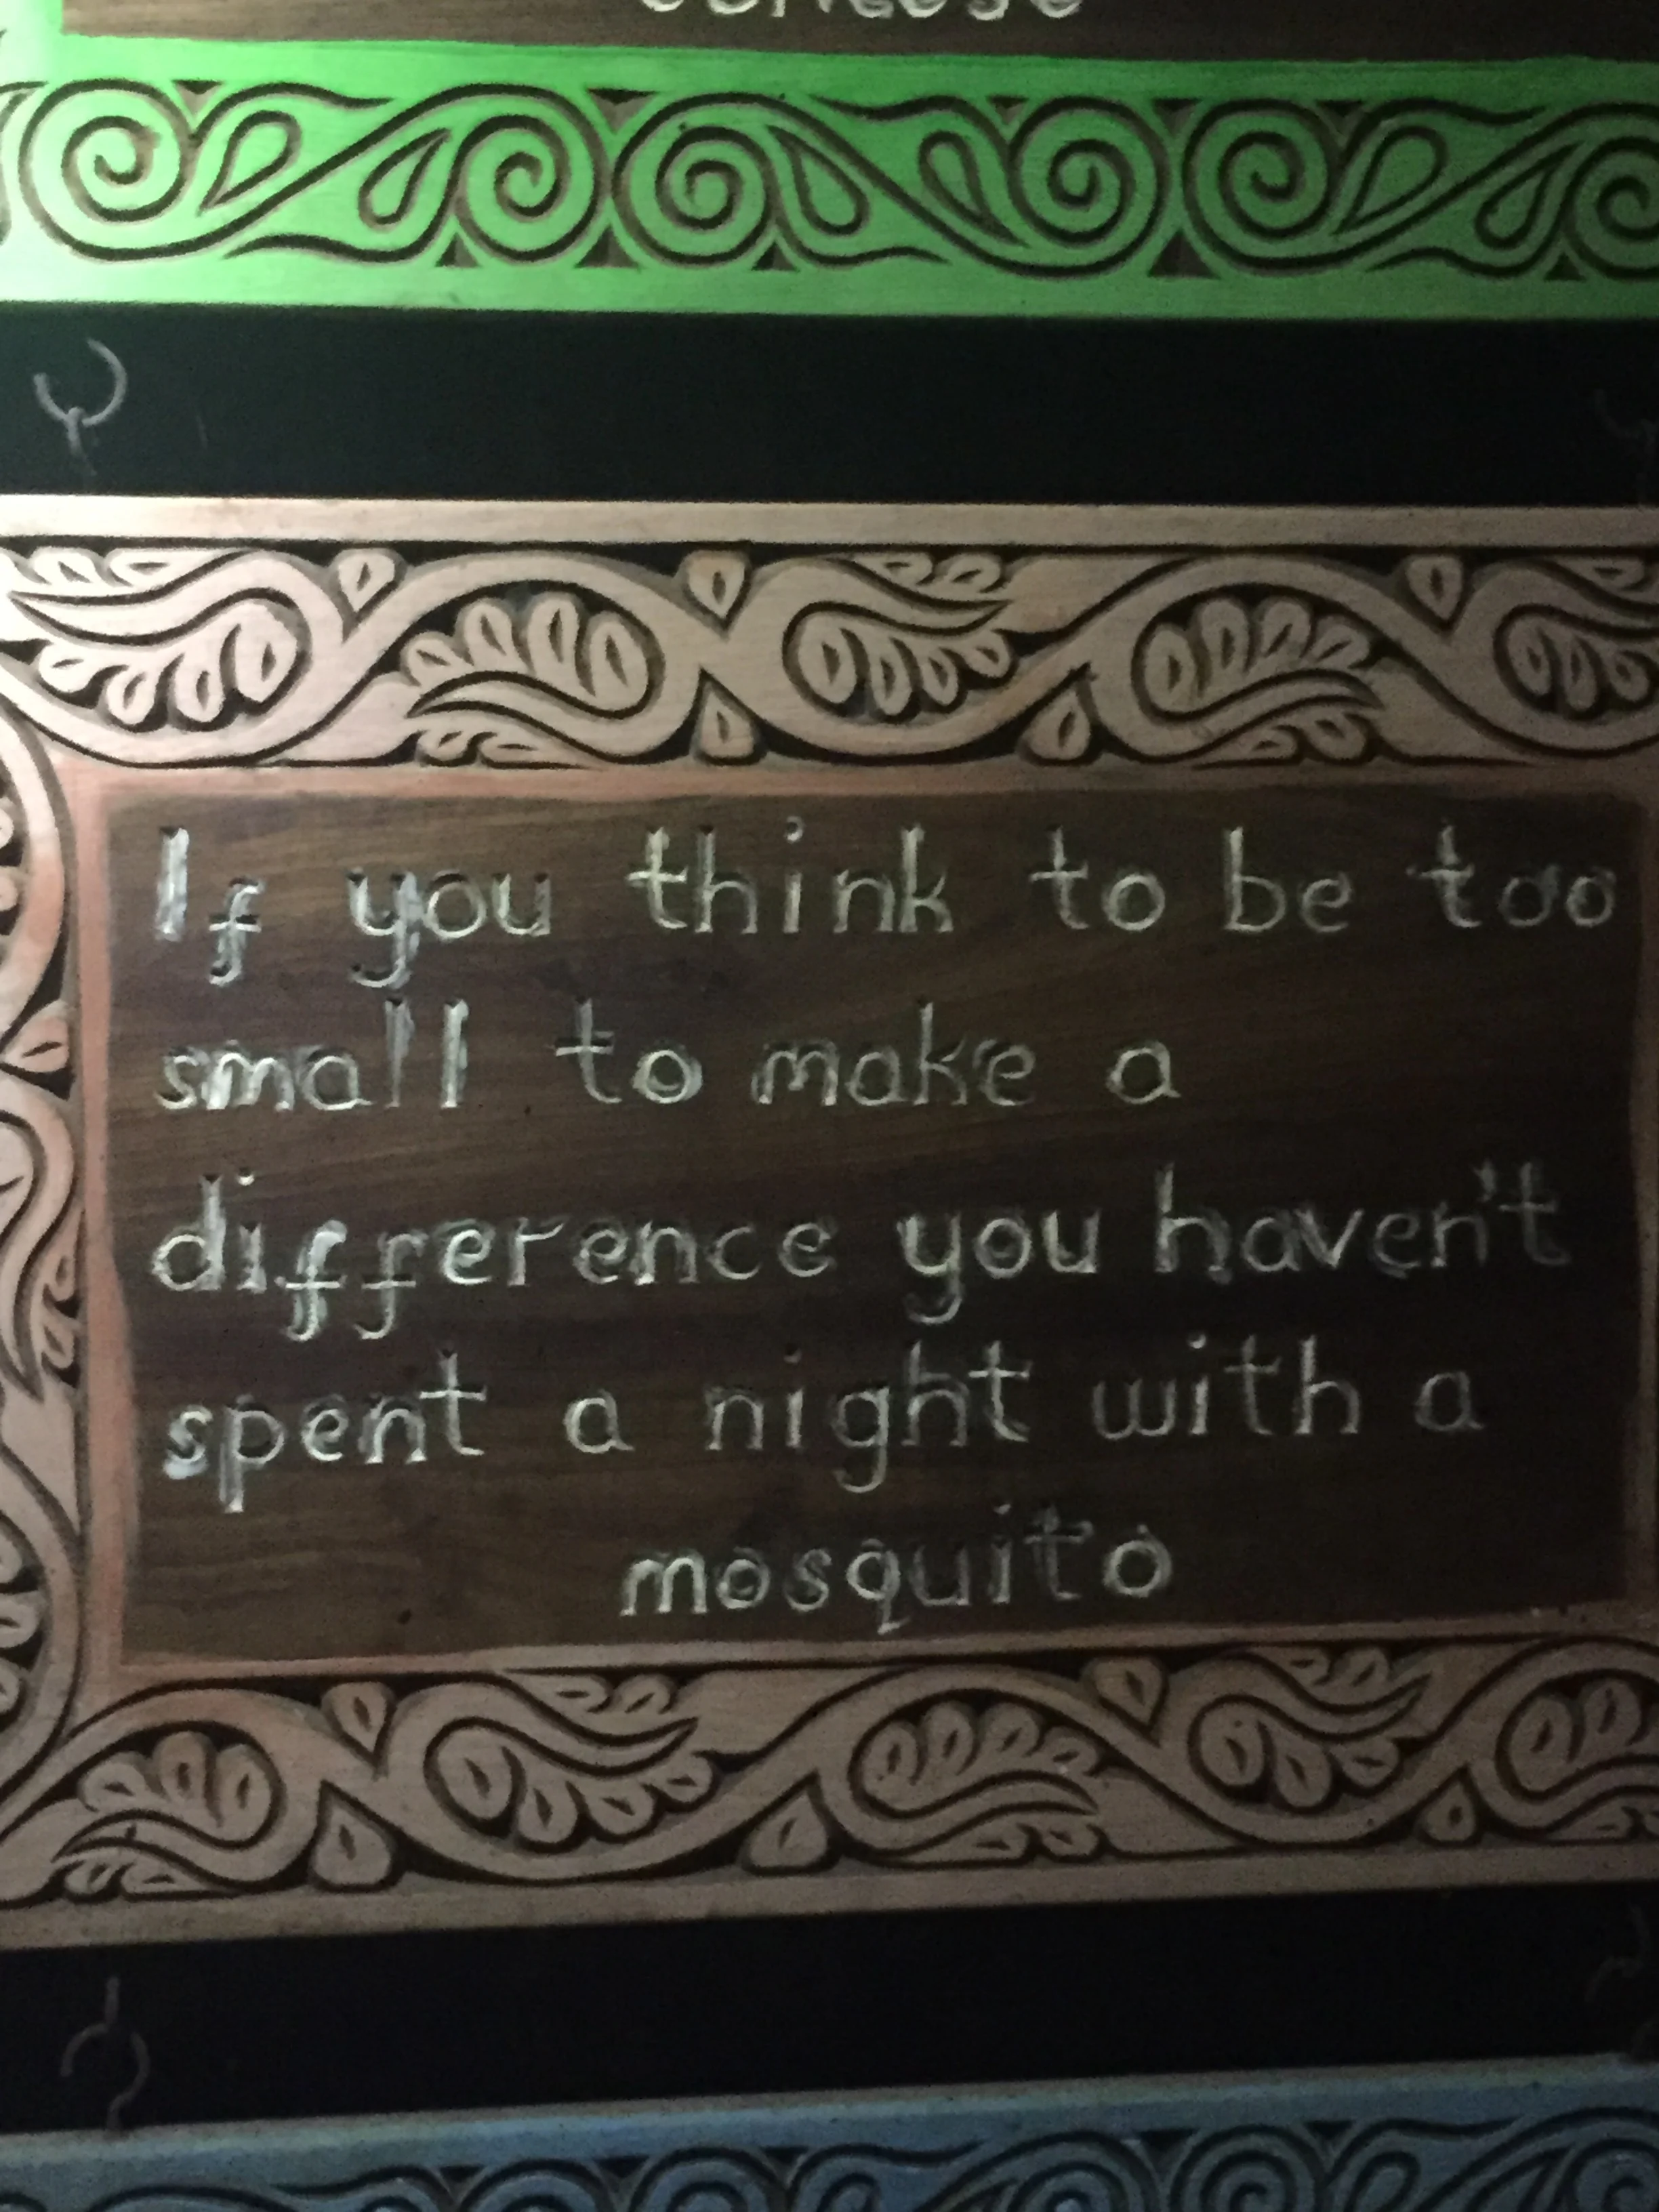 If you think to be too
small to make a
difference you haven't
spent a night with a
mosquito